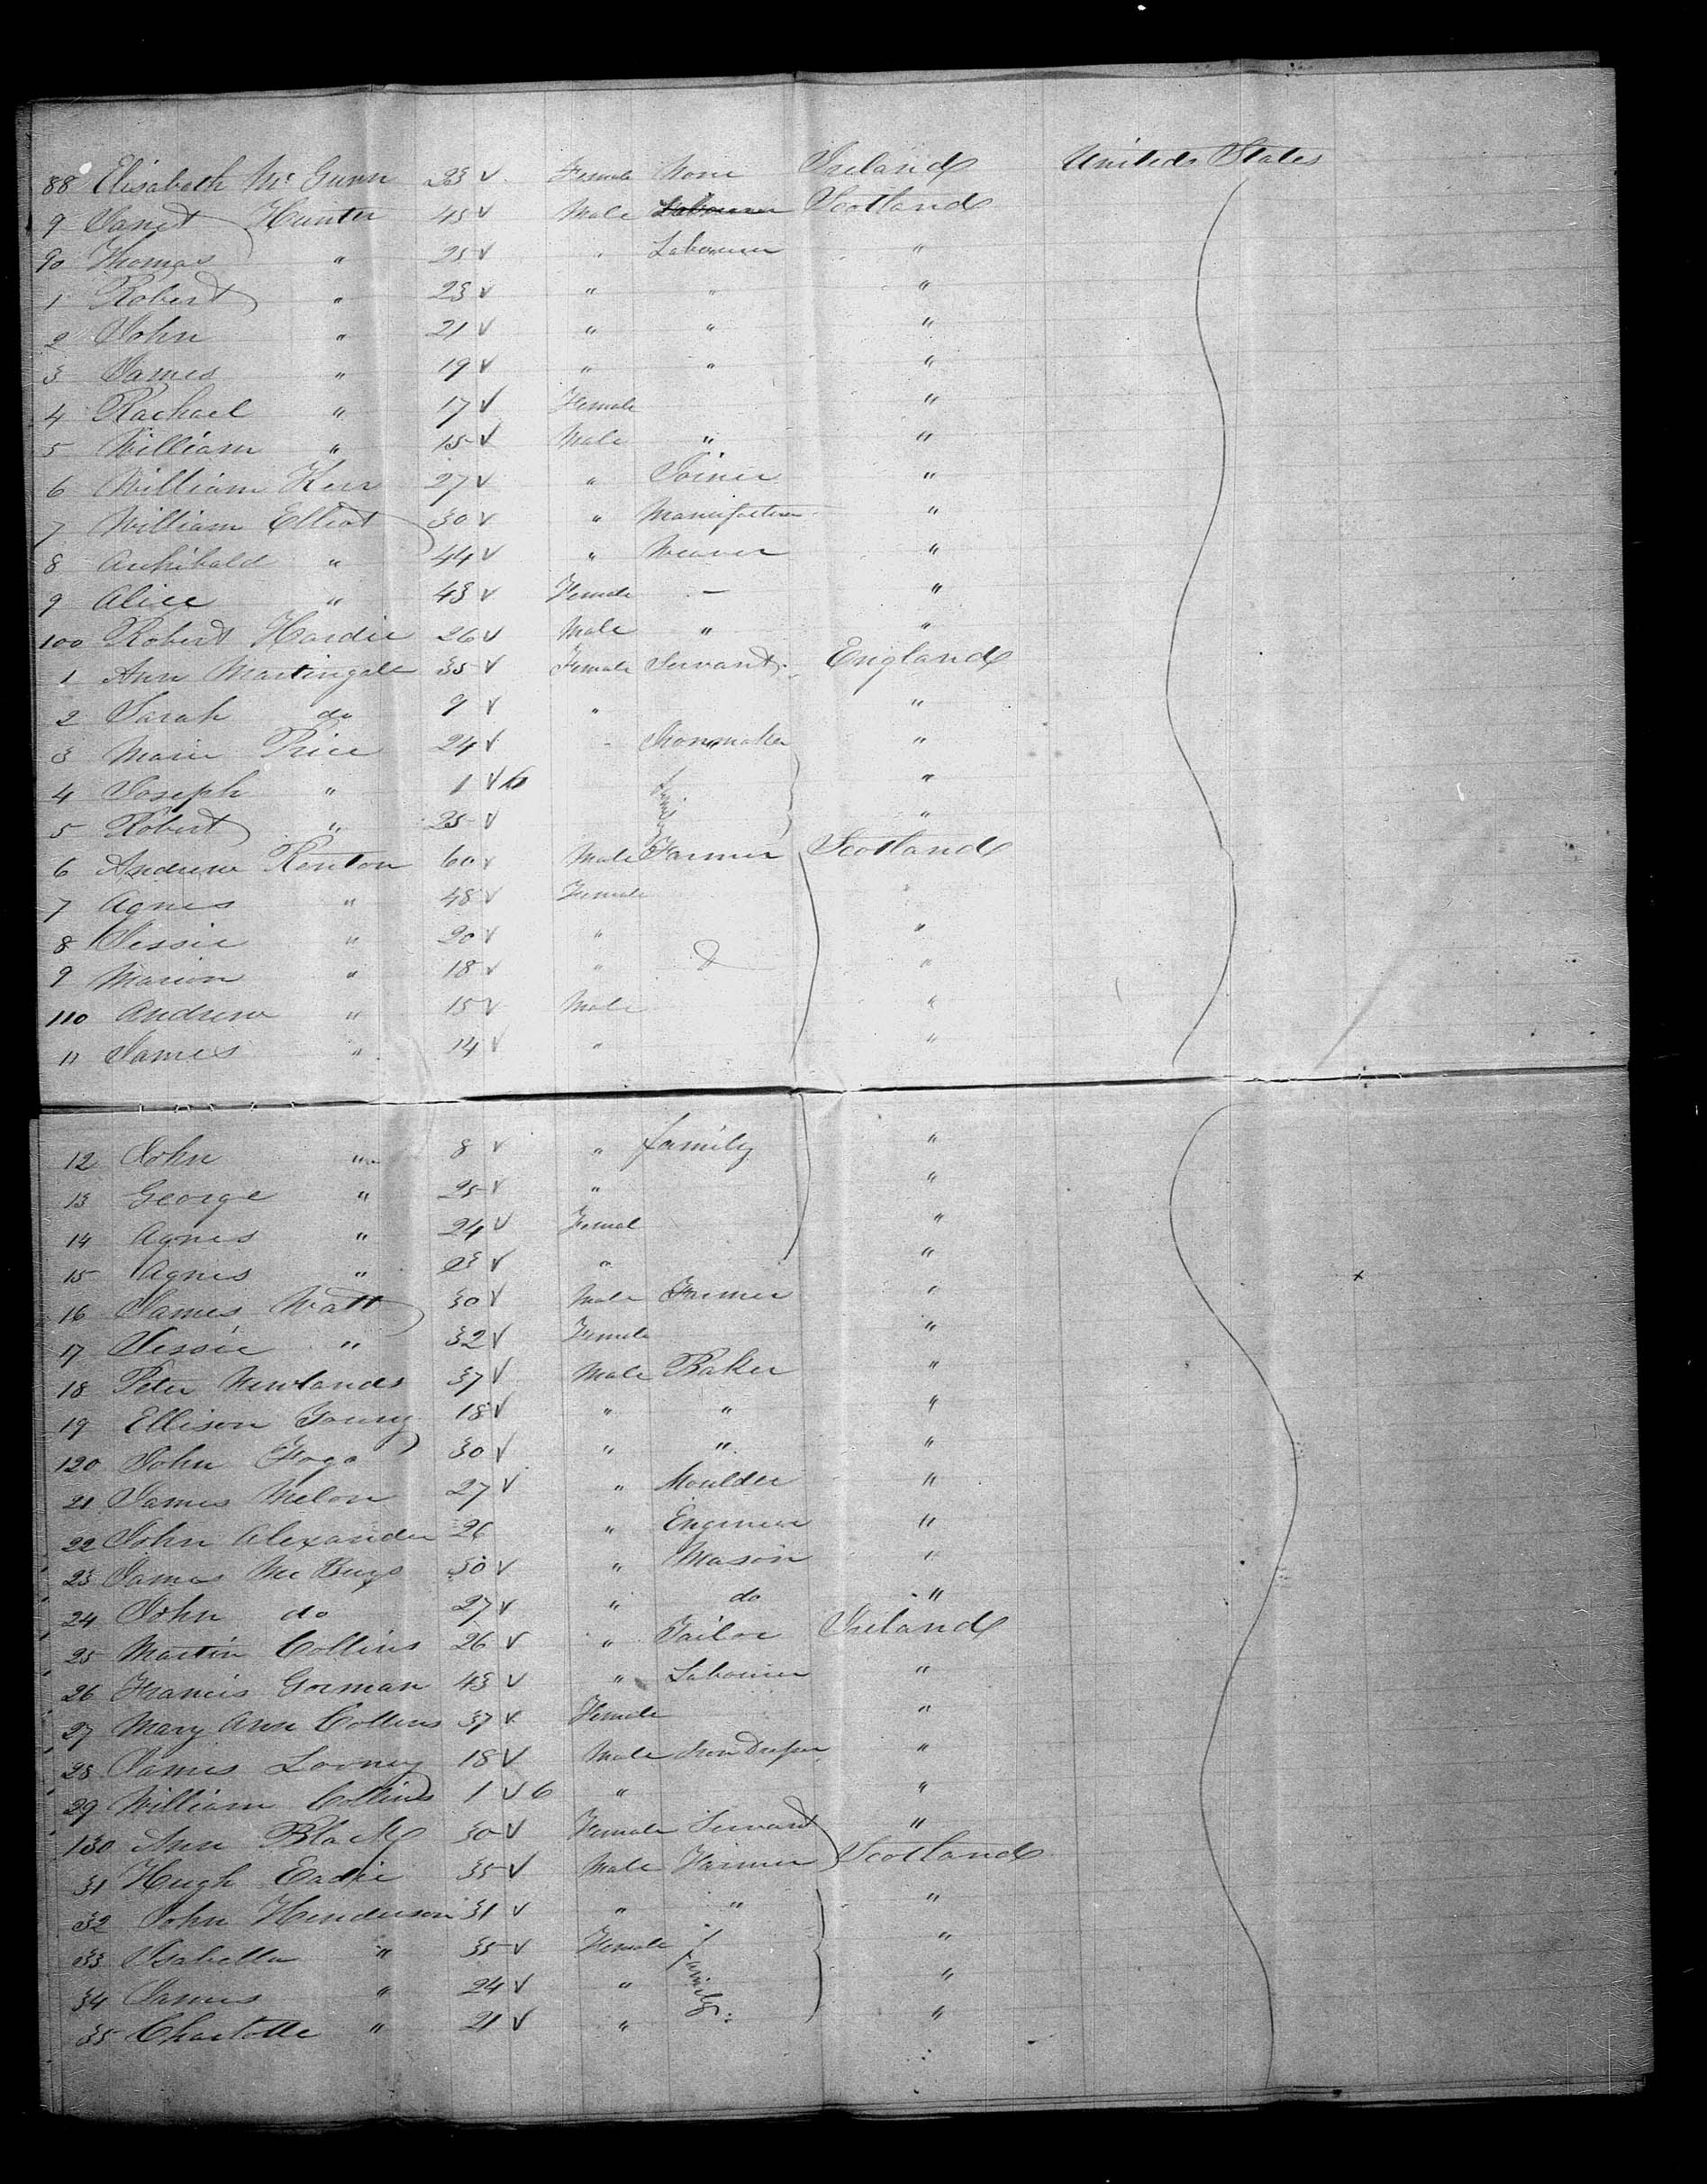 88 Elisabeth Mc Gunn 23 v Female None Ireland United States
9 Janet Hunter 45 v Male Labourer Scotland
90 Thomas " 25 v " Labourer "
1 Robert " 23 v " " "
2 John " 21 v " " "
3 James " 19 v " " "
4 Rachael " 17 v Female "
5 William " 15 v Male " "
6 William Kerr 27 v " Joiner "
7 William Elliot 30 v " "
8 Archibald " 44 v " Weaver "
9 Alice " 43 v Female - "
100 Robert Hardie 26 v Male " "
1 Ann Martingale 35 v Female Servant England
2 Sarah do 9 v " "
3 Price 24 v "
4 Joseph " 1 v 6 family "
5 Robert " 25 v "
6 Andrew Renton 60 v Male Farmer Scotland
7 Agnes " 48 v Female "
8 Jessie " 20 v " "
9 Marion " 18 v " "
110 Andrew " 15 v Male "
11 James " 14 v " "
12 John " 8 v " family "
13 George " 25 v " "
14 Agnes " 24 v Femal "
15 Agnes " 23 v " "
16 James Watt 30 v Male Farmer "
17 Jessie " 32 v Female "
18 Peter Newlands 37 v Male Baker "
19 Ellison Young 18 v " " "
120 John 30 v " " "
21 James Melon 27 v " Moulder "
22 John Alexander 26 " Engineer "
23 James 30 v " Mason "
24 John do 27 v " do "
25 Martin Collins 26 v " Tailor Ireland
26 Francis Gorman 43 v " Labourer "
27 Mary Ann Collins 37 v Female "
28 James Looney 18 v Male "
29 William Collins 1 v 6 " "
130 Ann Black 30 v Female Servant "
31 Hugh Eadie 35 v Male Farmer Scotland
32 John Henderson 31 v " " "
33 Isabella " 35 v Female family "
34 James " 24 v " "
35 Charlotte " 21 v " "